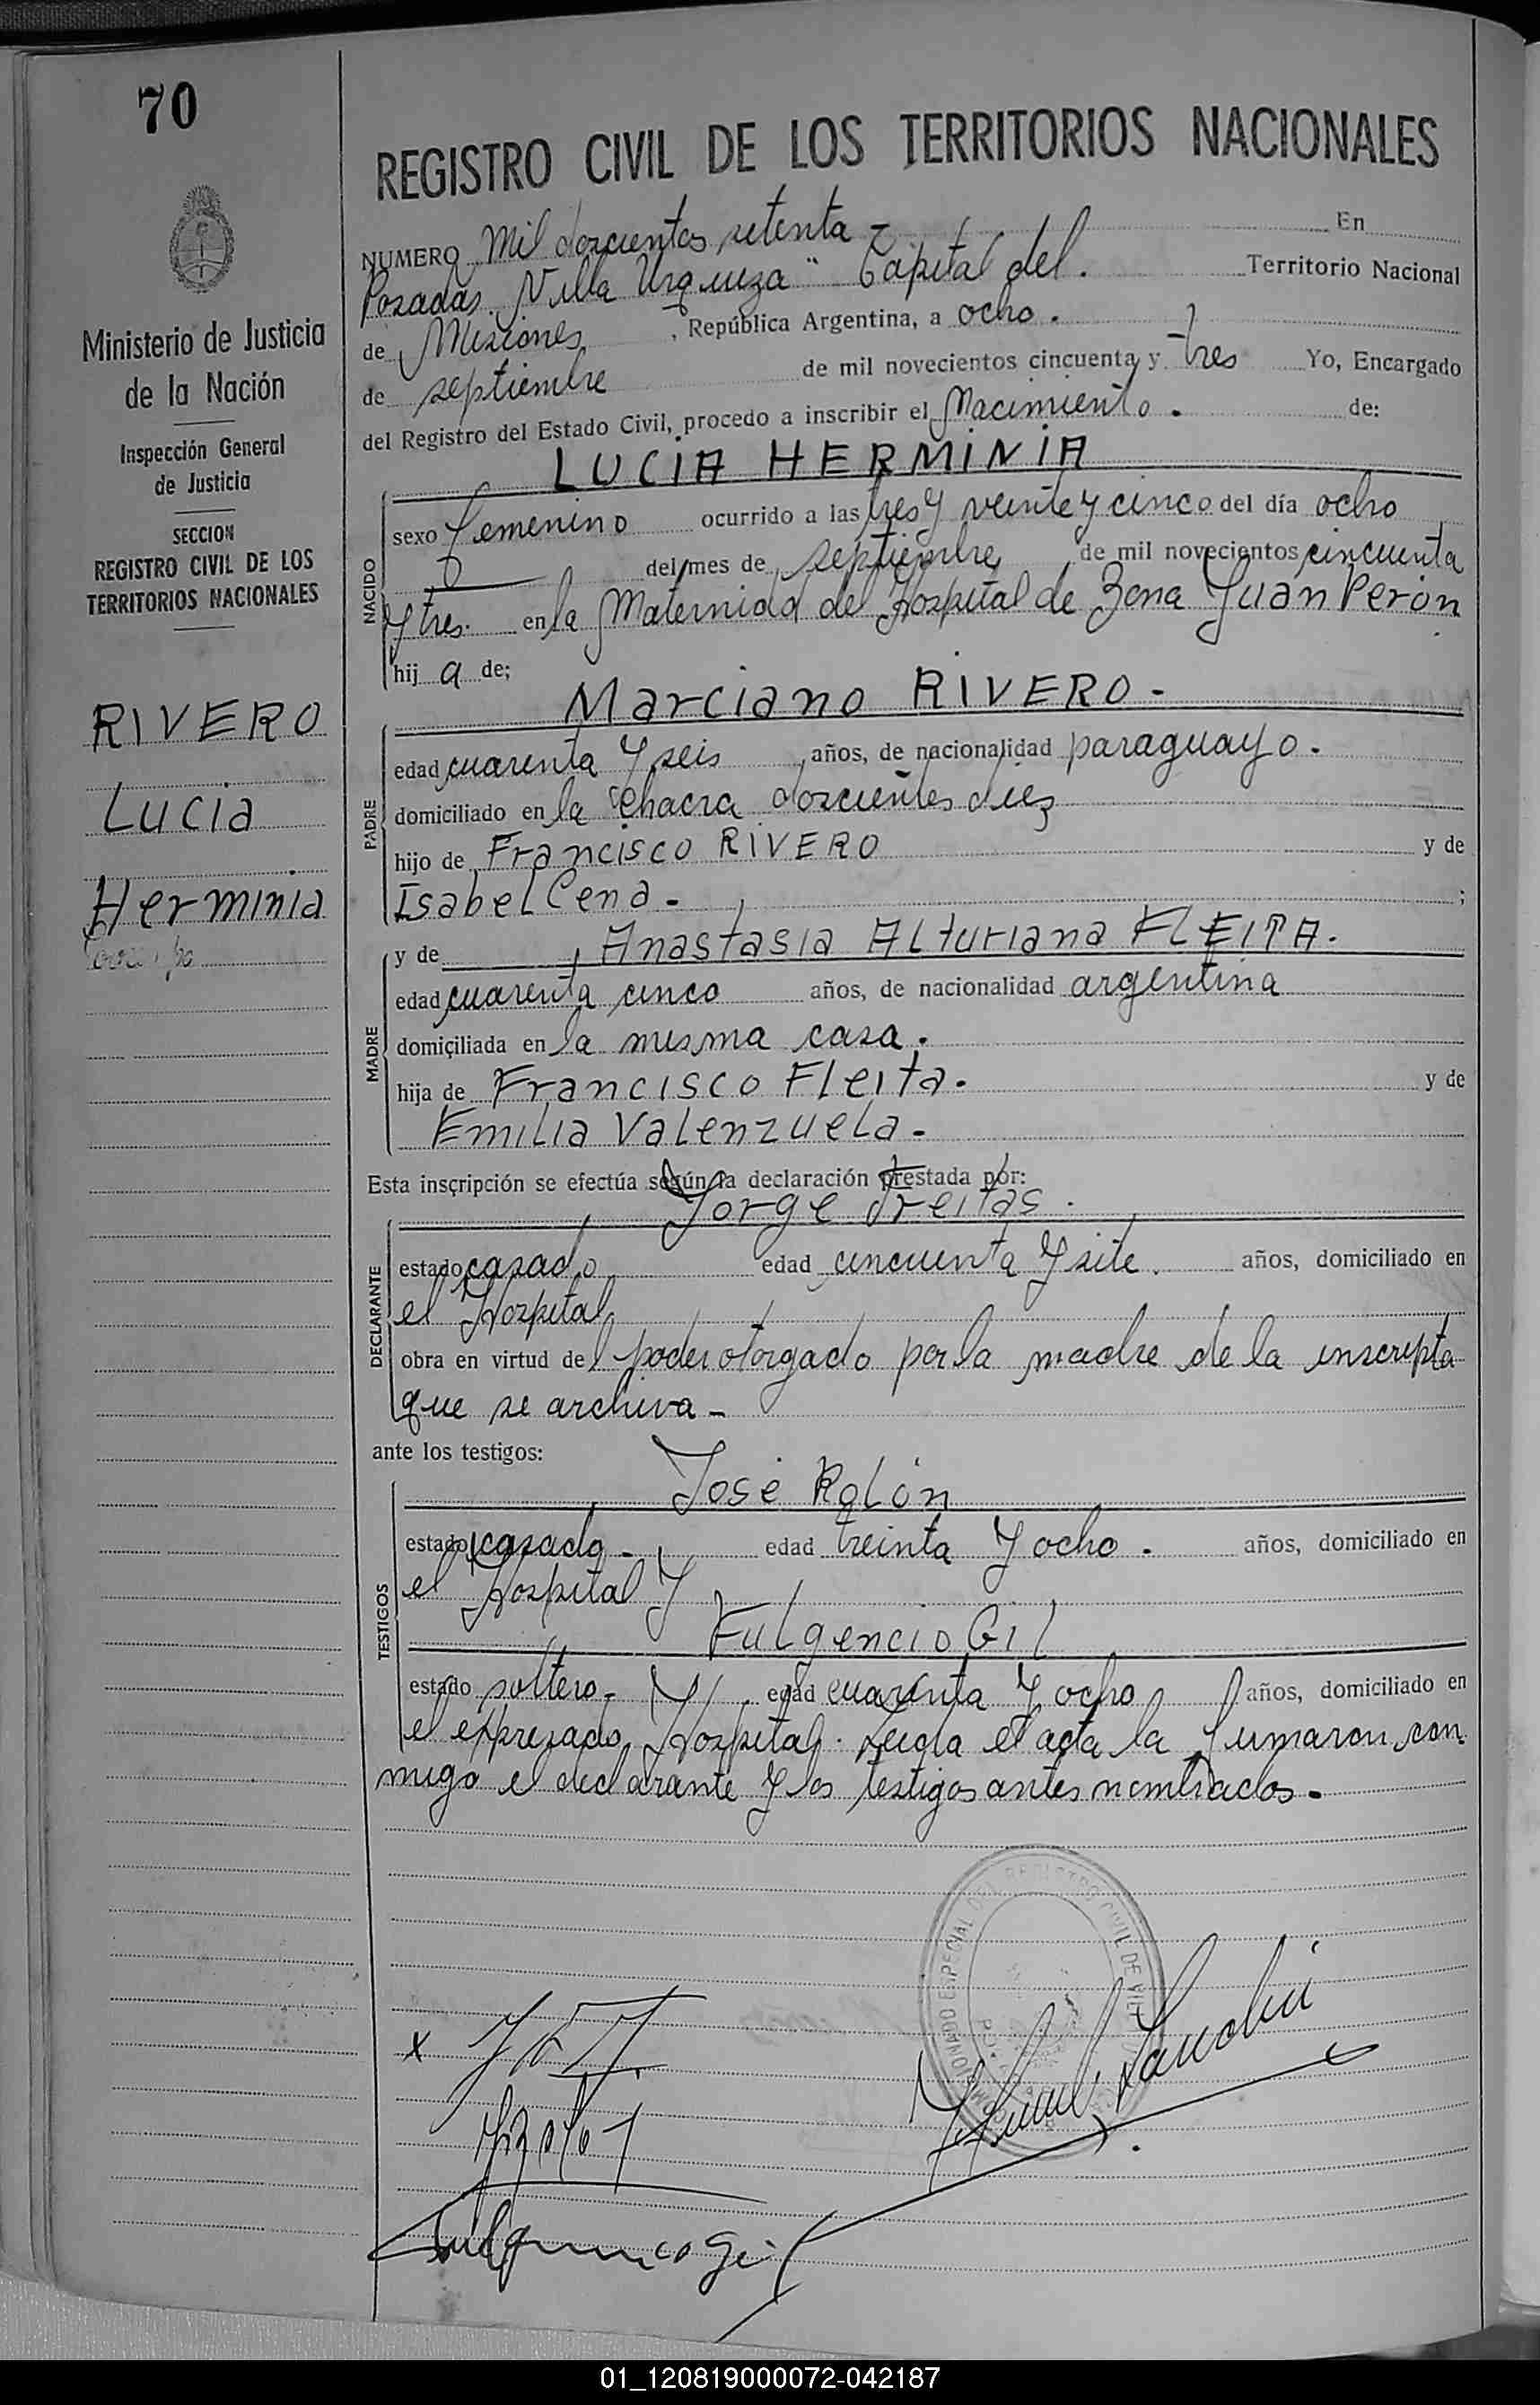 70
Ministerio de Justicia
de la Nación
Inspección General
de Justicia
SECCION
REGISTRO CIVIL DE LOS
TERRITORIOS NACIONALES
RIVERO
Lucia
Herminia
REGISTRO CIVIL DE LOS TERRITORIOS NACIONALES
NUMERO Mil doscientos setenta - En
Posadas "Villa Urquiza" Capital del. Territorio Nacional
de Misiones, República Argentina, a ocho.
de septiembre de mil novecientos cincuenta y tres Yo, Encargado
del Registro del Estado Civil, procedo a inscribir el Nacimiento. de:
LUCIA HERMINIA
NACIDO
sexo femenino ocurrido a las tres y veinte y cinco del día ocho
del mes de septiembre de mil novecientos cincuenta
y tres. en la Maternidad del Hospital de Zona Juan Perón
hij a de;
Marciano RIVERO -
PADRE
edad cuarenta y seis años, de nacionalidad paraguayo.
domiciliado en la chacra doscientos diez
hijo de Francisco RIVERO y de
Isabel Cena - ;
y de Anastasia Alturiana FLEITA.
MADRE
edad cuarenta cinco años, de nacionalidad argentina
domiciliada en la misma casa.
hija de Francisco Fleita. y de
Emilia Valenzuela -
Esta inscripción se efectúa según la declaración prestada por:
Jorge Freitas.
DECLARANTE
estado casado edad cincuenta y siete. años, domiciliado en
el Hospital
obra en virtud del poder otorgado por la madre de la inscripta
que se archiva -
ante los testigos:
José Rolón
TESTIGOS
estado casado - edad treinta y ocho. años, domiciliado en
el Hospital y
Fulgencio Gil
estado soltero - edad cuarenta y ocho años, domiciliado en
el expresado Hospital. Leida el acta la firmaron con
migo el declarante y los testigos antes nombrados.
Fulgencio Gil
01_120819000072-042187